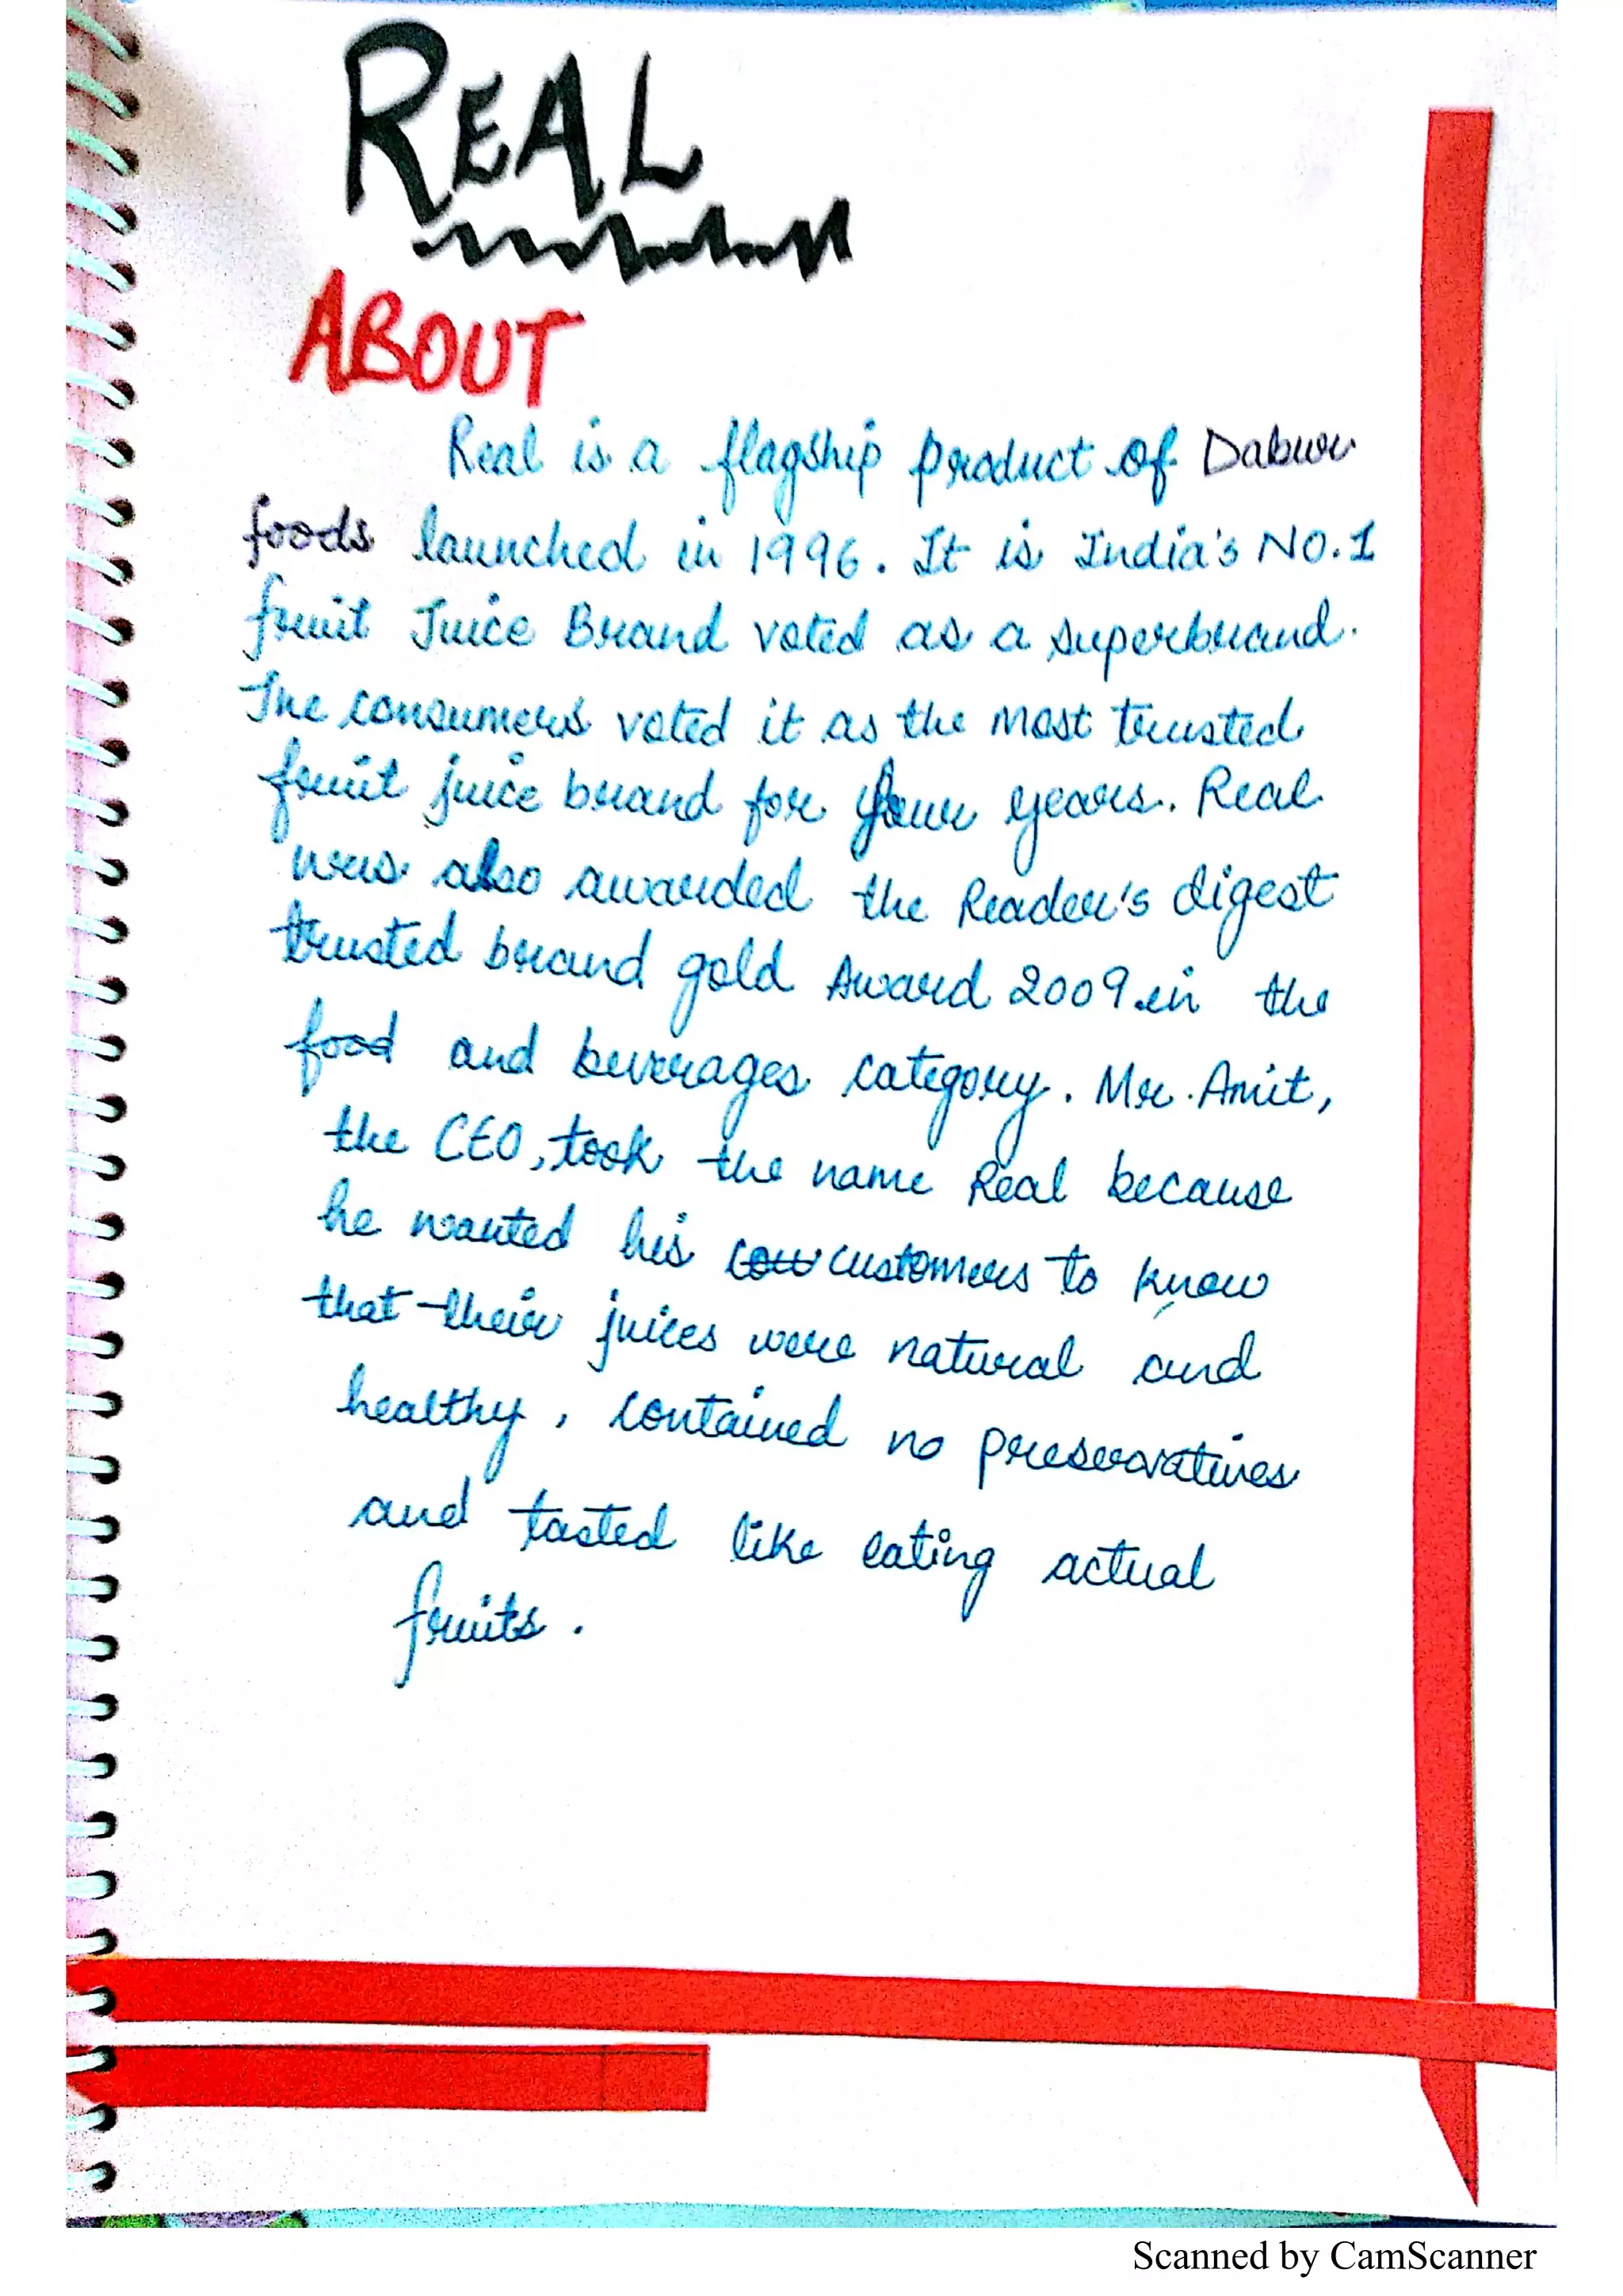 REAL
ABOUT
Real is a flagship product of Dabur
foods launched in 1996. It is India's NO.1
fruit Juice Brand voted as a superbrand.
The consumers voted it as the most trusted
fruit juice brand for four years. Real
was also awarded the Reader's digest
trusted brand gold Award 2009 in the
food and beverages category. Mr. Amit,
the CEO, took the name Real because
he wanted his customers to know
that their juices were natural and
healthy, contained no preservatives
and tasted like eating actual
fruits.
Scanned by CamScanner